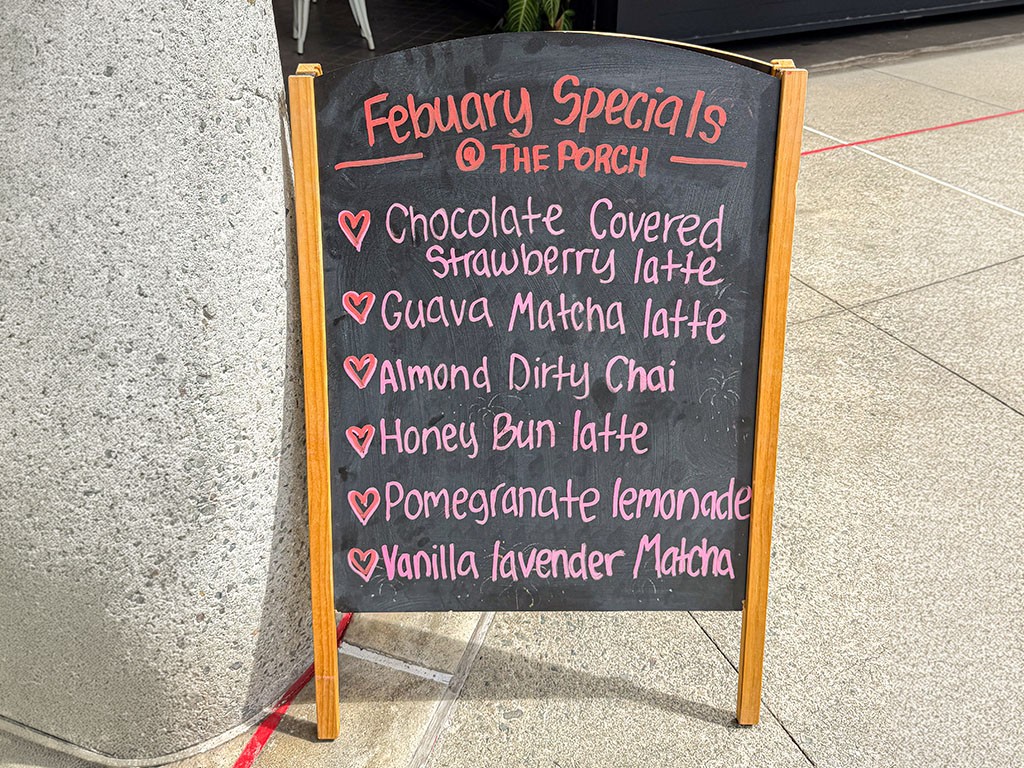 Febuary Specials
@ THE PORCH
Chocolate Covered
Strawberry latte
Guava Matcha latte
Almond Dirty Chai
Honey Bun latte
Pomegranate lemonade
Vanilla lavender Matcha